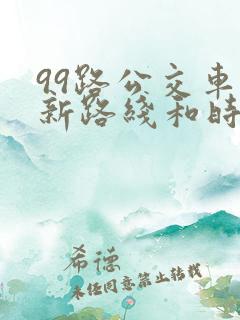 99路公交车
新路线和时
希德
未经同意禁止转载